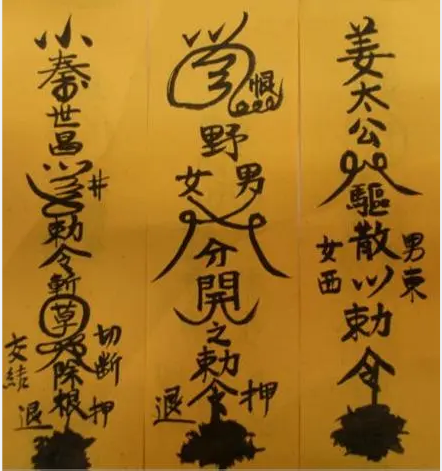 姜太公驅散勅令
男東
女西
恨
野
男
女
分開之勅令
押
退
小秦世昌
井
勅令斬草除根
切断
交結
押
退